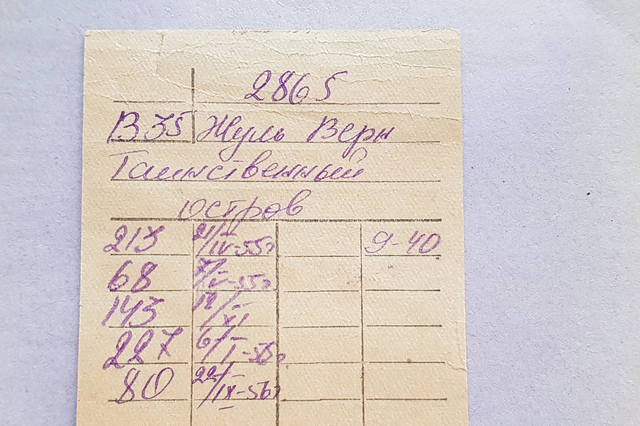 2865
В35 Жуль Верн
Таинственный
остров
213 21/IV-55г 9-40
68
143 12/XI
227 6/I-56г
80 22/IX-56г